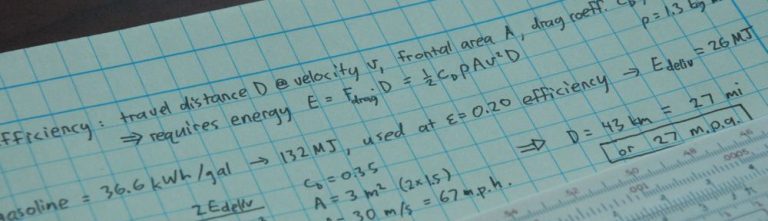 fficiency: travel distance D @ velocity v, frontal area A, drag coeff. C_D,
ρ = 1.3 kg
⇒ requires energy E = F_drag·D = ½ C_D ρ A v² D
asoline = 36.6 kWh/gal → 132 MJ, used at ε = 0.20 efficiency → E_deliv = 26 MJ
C_D = 0.35
A = 3 m² (2×1.5)
30 m/s = 67 m.p.h.
2 E_deliv
⇒ D = 43 km = 27 mi
or 27 m.p.g.